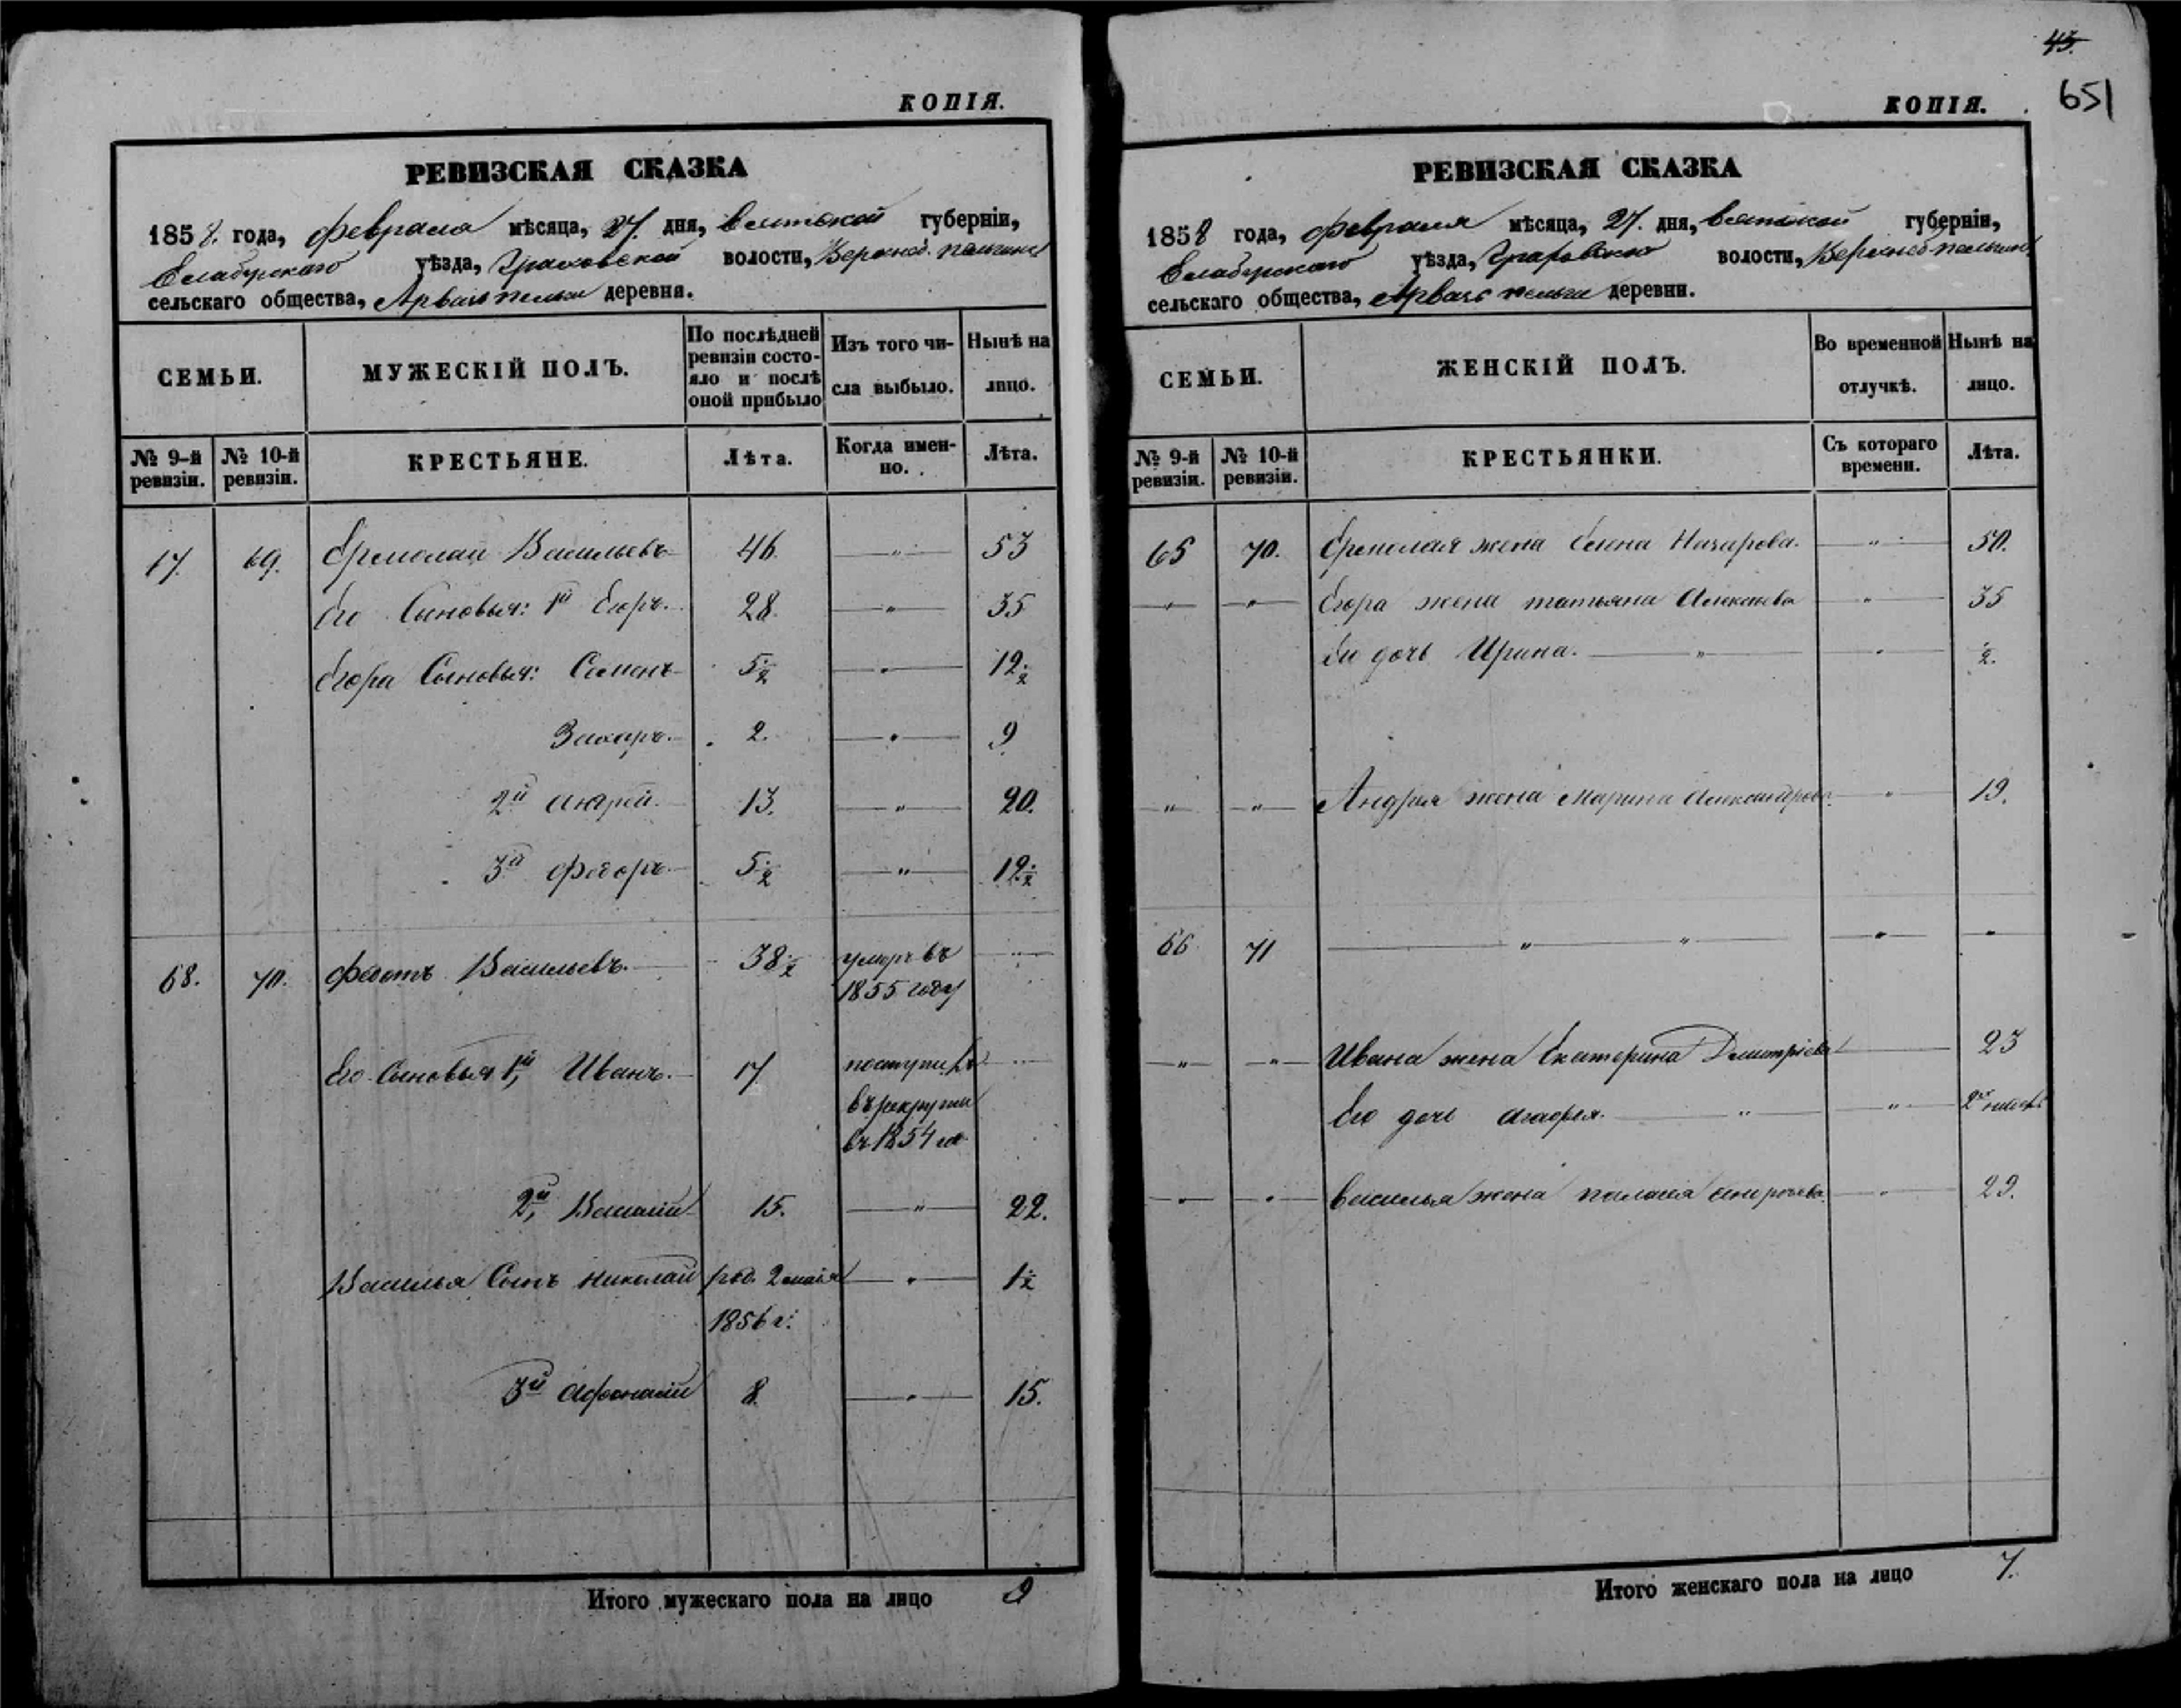 КОПІЯ.
РЕВИЗСКАЯ СКАЗКА
1858. года, февраля мѣсяца, 27. дня, вятской губерніи,
Елабужскаго уѣзда, Граховской волости,
сельскаго общества, Арвазь пельга деревня.
СЕМЬИ.
МУЖЕСКІЙ ПОЛЪ.
По послѣдней ревизіи состо-
яло и послѣ оной прибыло
Изъ того чи-
сла выбыло.
Нынѣ на
лицо.
№ 9-й ревизіи.
№ 10-й ревизіи.
КРЕСТЬЯНЕ.
Лѣта.
Когда имен-
но.
Лѣта.
17. 69. Ермолай Васильевъ 46. " 53
Его Сыновья: 1й Егоръ. 28. " 35
Егора Сыновья: Семенъ 5½ " 12½
Захаръ. 2. " 9
2й Андрей. 13. " 20.
3й Федоръ. 5½ " 12½
68. 70. Федотъ Васильевъ. 38½ умеръ въ
1855 году
Его Сыновья 1й, Иванъ. 17 поступилъ
въ рекруты
въ 1854 го
2й, Василій 15. " 22.
Василья Сынъ Николай род. 2 мая " 1½
1856 г:
3й Афонасій 8. " 15.
Итого мужескаго пола на лицо 9
45.
651
КОПІЯ.
РЕВИЗСКАЯ СКАЗКА
1858 года, февраля мѣсяца, 27. дня, вятской губерніи,
Елабужскаго уѣзда, Граховской волости,
сельскаго общества, Арвазь пельга деревни.
СЕМЬИ.
ЖЕНСКІЙ ПОЛЪ.
Во временной
отлучкѣ.
Нынѣ на
лицо.
№ 9-й ревизіи.
№ 10-й ревизіи.
КРЕСТЬЯНКИ.
Съ котораго
времени.
Лѣта.
65 70. Ермолая жена Елена Назарова. " 50.
" " Егора жена татьяна Алексѣева " 35
Его дочь Ирина. " " ½.
" " Андрея жена Марина Александрова. " 19.
66 71 " " " "
" " Ивана жена Екатерина Дмитріева 23
Его дочь Агафья. " "
" " Василья жена палагея " 29.
Итого женскаго пола на лицо 7.